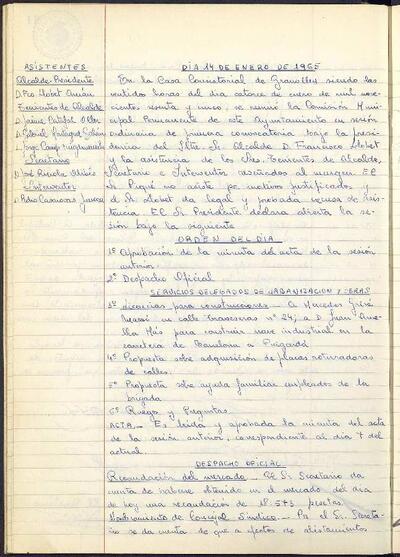 ASISTENTES
Alcalde-Presidente
D. Fco Llobet
Tenientes de Alcalde
D. Jaime
D. Gabriel
D. Jorge Camp
Secretario
D. José
Interventor
D. Pedro Casanovas
DIA 14 DE ENERO DE 1965
En la Casa Consistorial de Granollers siendo las
veintidos horas del dia catorce de enero de mil nove-
cientos sesenta y cinco, se reunió la Comisión Muni-
cipal Permanente de este Ayuntamiento en sesión
ordinaria de primera convocatoria bajo la presi-
dencia del Iltre. Sr. Alcalde D. Francisco Llobet
y la asistencia de los Sres. Tenientes de Alcalde,
Secretario e Interventor reseñados al margen. El
Sr. Piqué no asiste por motivos justificados, y
D. Llobet da legal y probada excusa de asis-
tencia. El Sr. Presidente declara abierta la se-
sión bajo la siguiente
ORDEN DEL DIA
1º Aprobación de la minuta del acta de la sesión
anterior
2º Despacho Oficial
SERVICIOS DELEGADOS DE URBANIZACION Y OBRAS
3º Licencias para construcciones.- A Mercedes
en calle Travesseras nº 24; a D. Juan
Más para construir nave industrial en la
carretera de Barcelona a Puigcerdá
4º Propuesta sobre adquisición de placas rotuladoras
de calles.
5º Propuesta sobre ayuda familiar empleados de la
brigada
6º Ruegos y Preguntas
ACTA.- Es leída y aprobada la minuta del acta
de la sesión anterior, correspondiente al dia 7 del
actual.
DESPACHO OFICIAL
Recaudación del mercado.- El Sr. Secretario da
cuenta de haberse obtenido en el mercado del dia
de hoy una recaudación de 18.543 pesetas.
Nombramiento de Concejal Síndico.- Por el Sr. Secreta-
rio se da cuenta de que a efectos de alistamientos